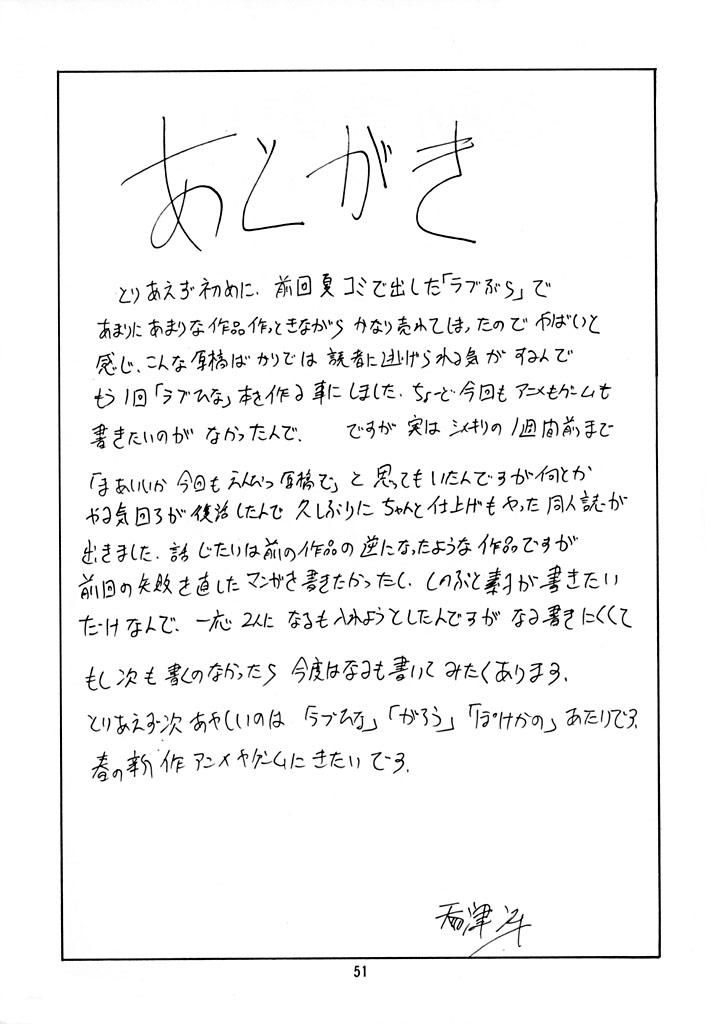 あとがき
とりあえず初めに、前回夏コミで出した「ラブぶら」で
あまりにあまりな作品作っときながら かなり売れてしまったので やばいと
感じ、こんな原稿ばかりでは 読者に逃げられる気がするんで
もう1回「ラブひな」本を作る事にしました。ちょーど今回も アニメもゲームも
書きたいのが なかったんで、 ですが 実は シメキリの1週間前まで
「まあいいか 今回も えんぴつ原稿で」と 思ってもいたんですが 何とか
やる気回ろが復活したんで 久しぶりに ちゃんと仕上げもやった 同人誌が
出きました、話じたいは前の作品の逆になったような作品ですが
前回の失敗を直したマンガを書きたかったし、しのぶと素子が書きたい
だけなんで、一応2人に なるも入れようとしたんですが なる書きにくくて
もし次も 書くのなかったら 今度はなるも書いて みたくあります。
とりあえず次 あやしいのは 「ラブひな」「がろう」「ぽけかの」あたりです。
春の新作アニメやゲームにきたいです。
51